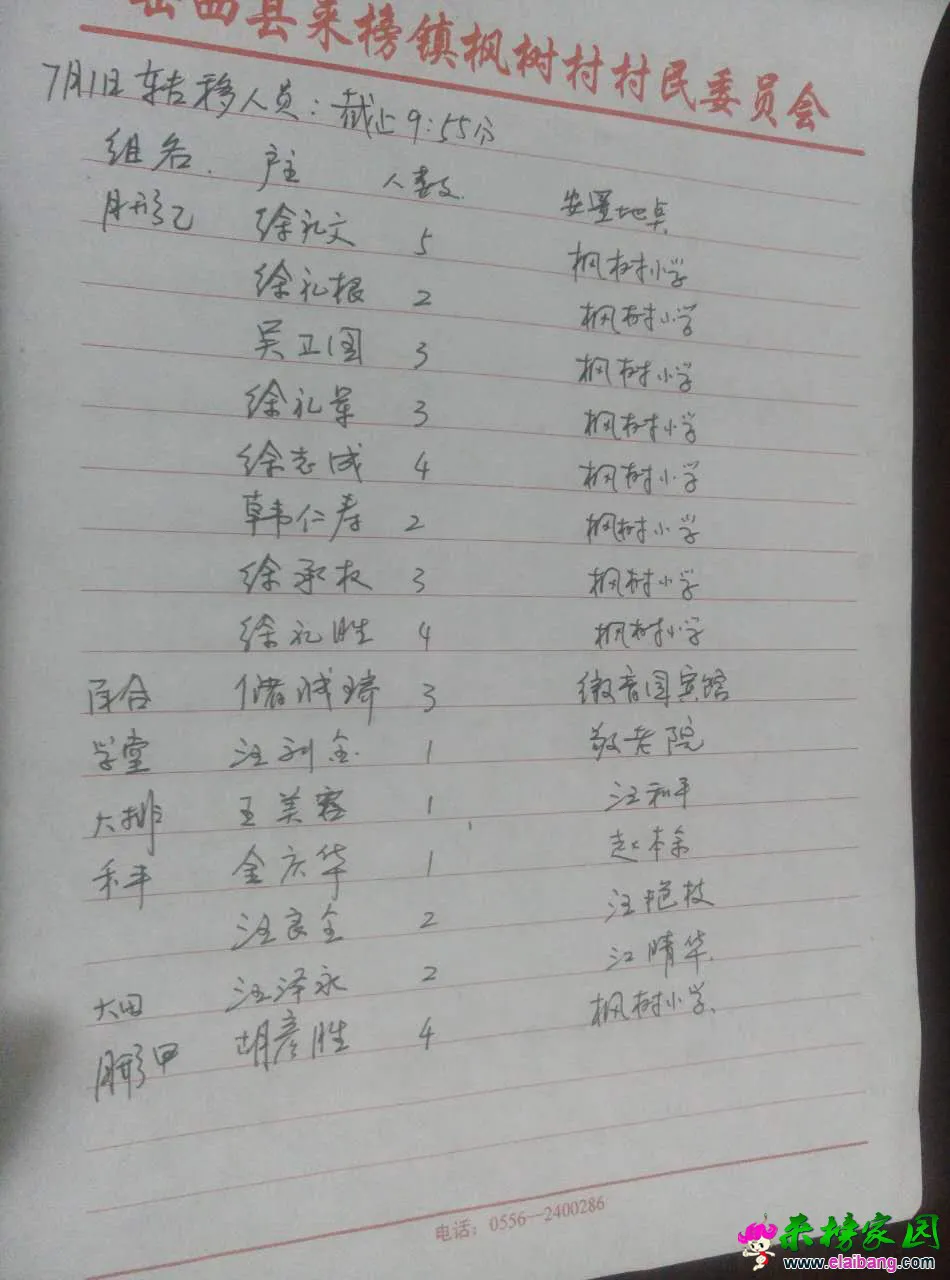 岳西县来榜镇枫树村村民委员会
7月1日转移人员：截止9:55分
组名. 户主 人数 安置地点
月形乙 徐礼文 5 枫树小学
徐礼根 2 枫树小学
吴卫国 3 枫树小学
徐礼军 3 枫树小学
徐志成 4 枫树小学
韩仁寿 2 枫树小学
徐承权 3 枫树小学
徐礼胜 4 枫树小学
储成琦 3 国宾馆
学堂 汪利全 1 敬老院
大排 王美容 1 汪和平
和平 金庆华 1 赵本余
汪良全 2 汪艳枝
大田 汪泽永 2 江晴华
月形甲 胡彦胜 4 枫树小学.
电话：0556—2400286
来榜家园
www.elaibang.com